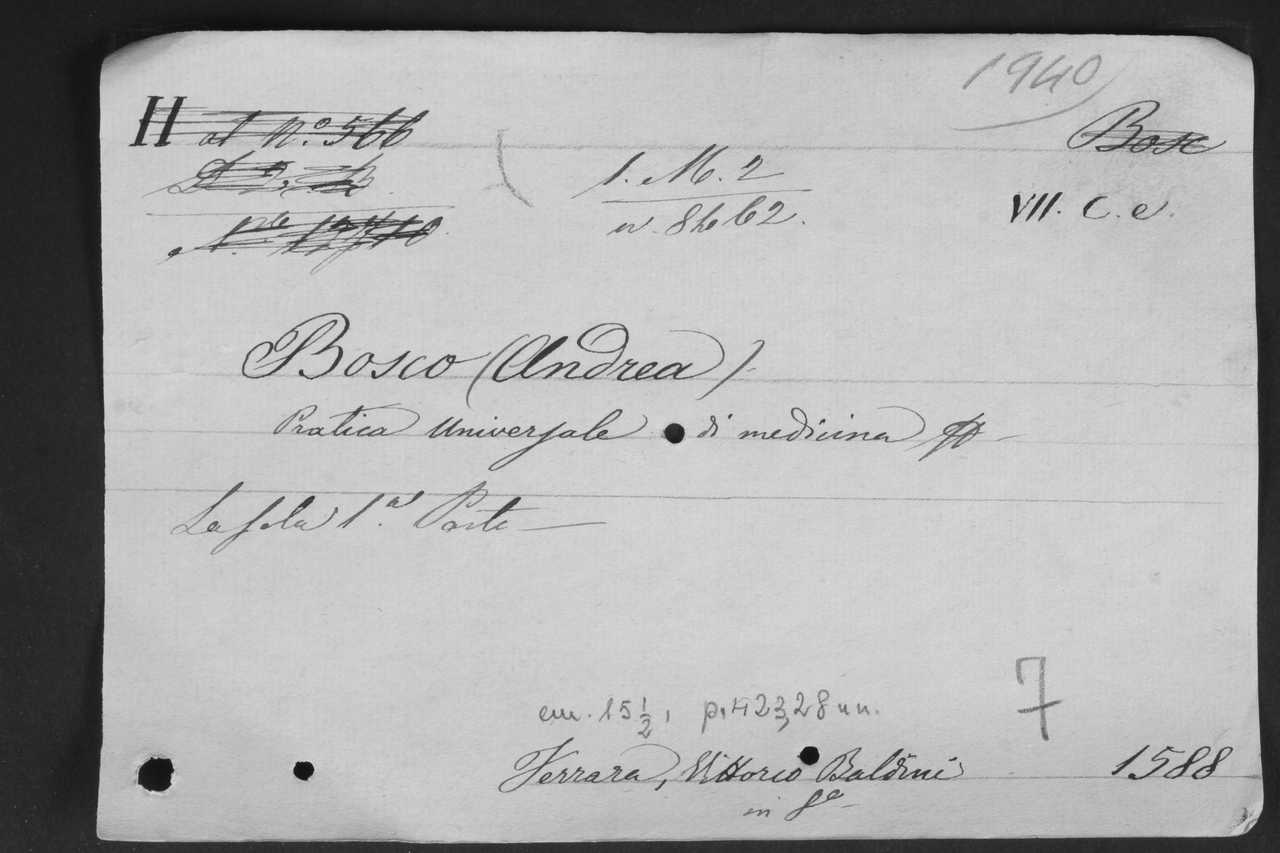 1940
H at N.º 566
Bosc
1. M. 2
VII. C. e.
Bosco (Andrea)
Pratica Universale di medicina
La sola 1.ª Parte
7
cm. 15 1/2, p. 423, 28 nn.
Ferrara, Vittorio Baldini 1588
in 8º